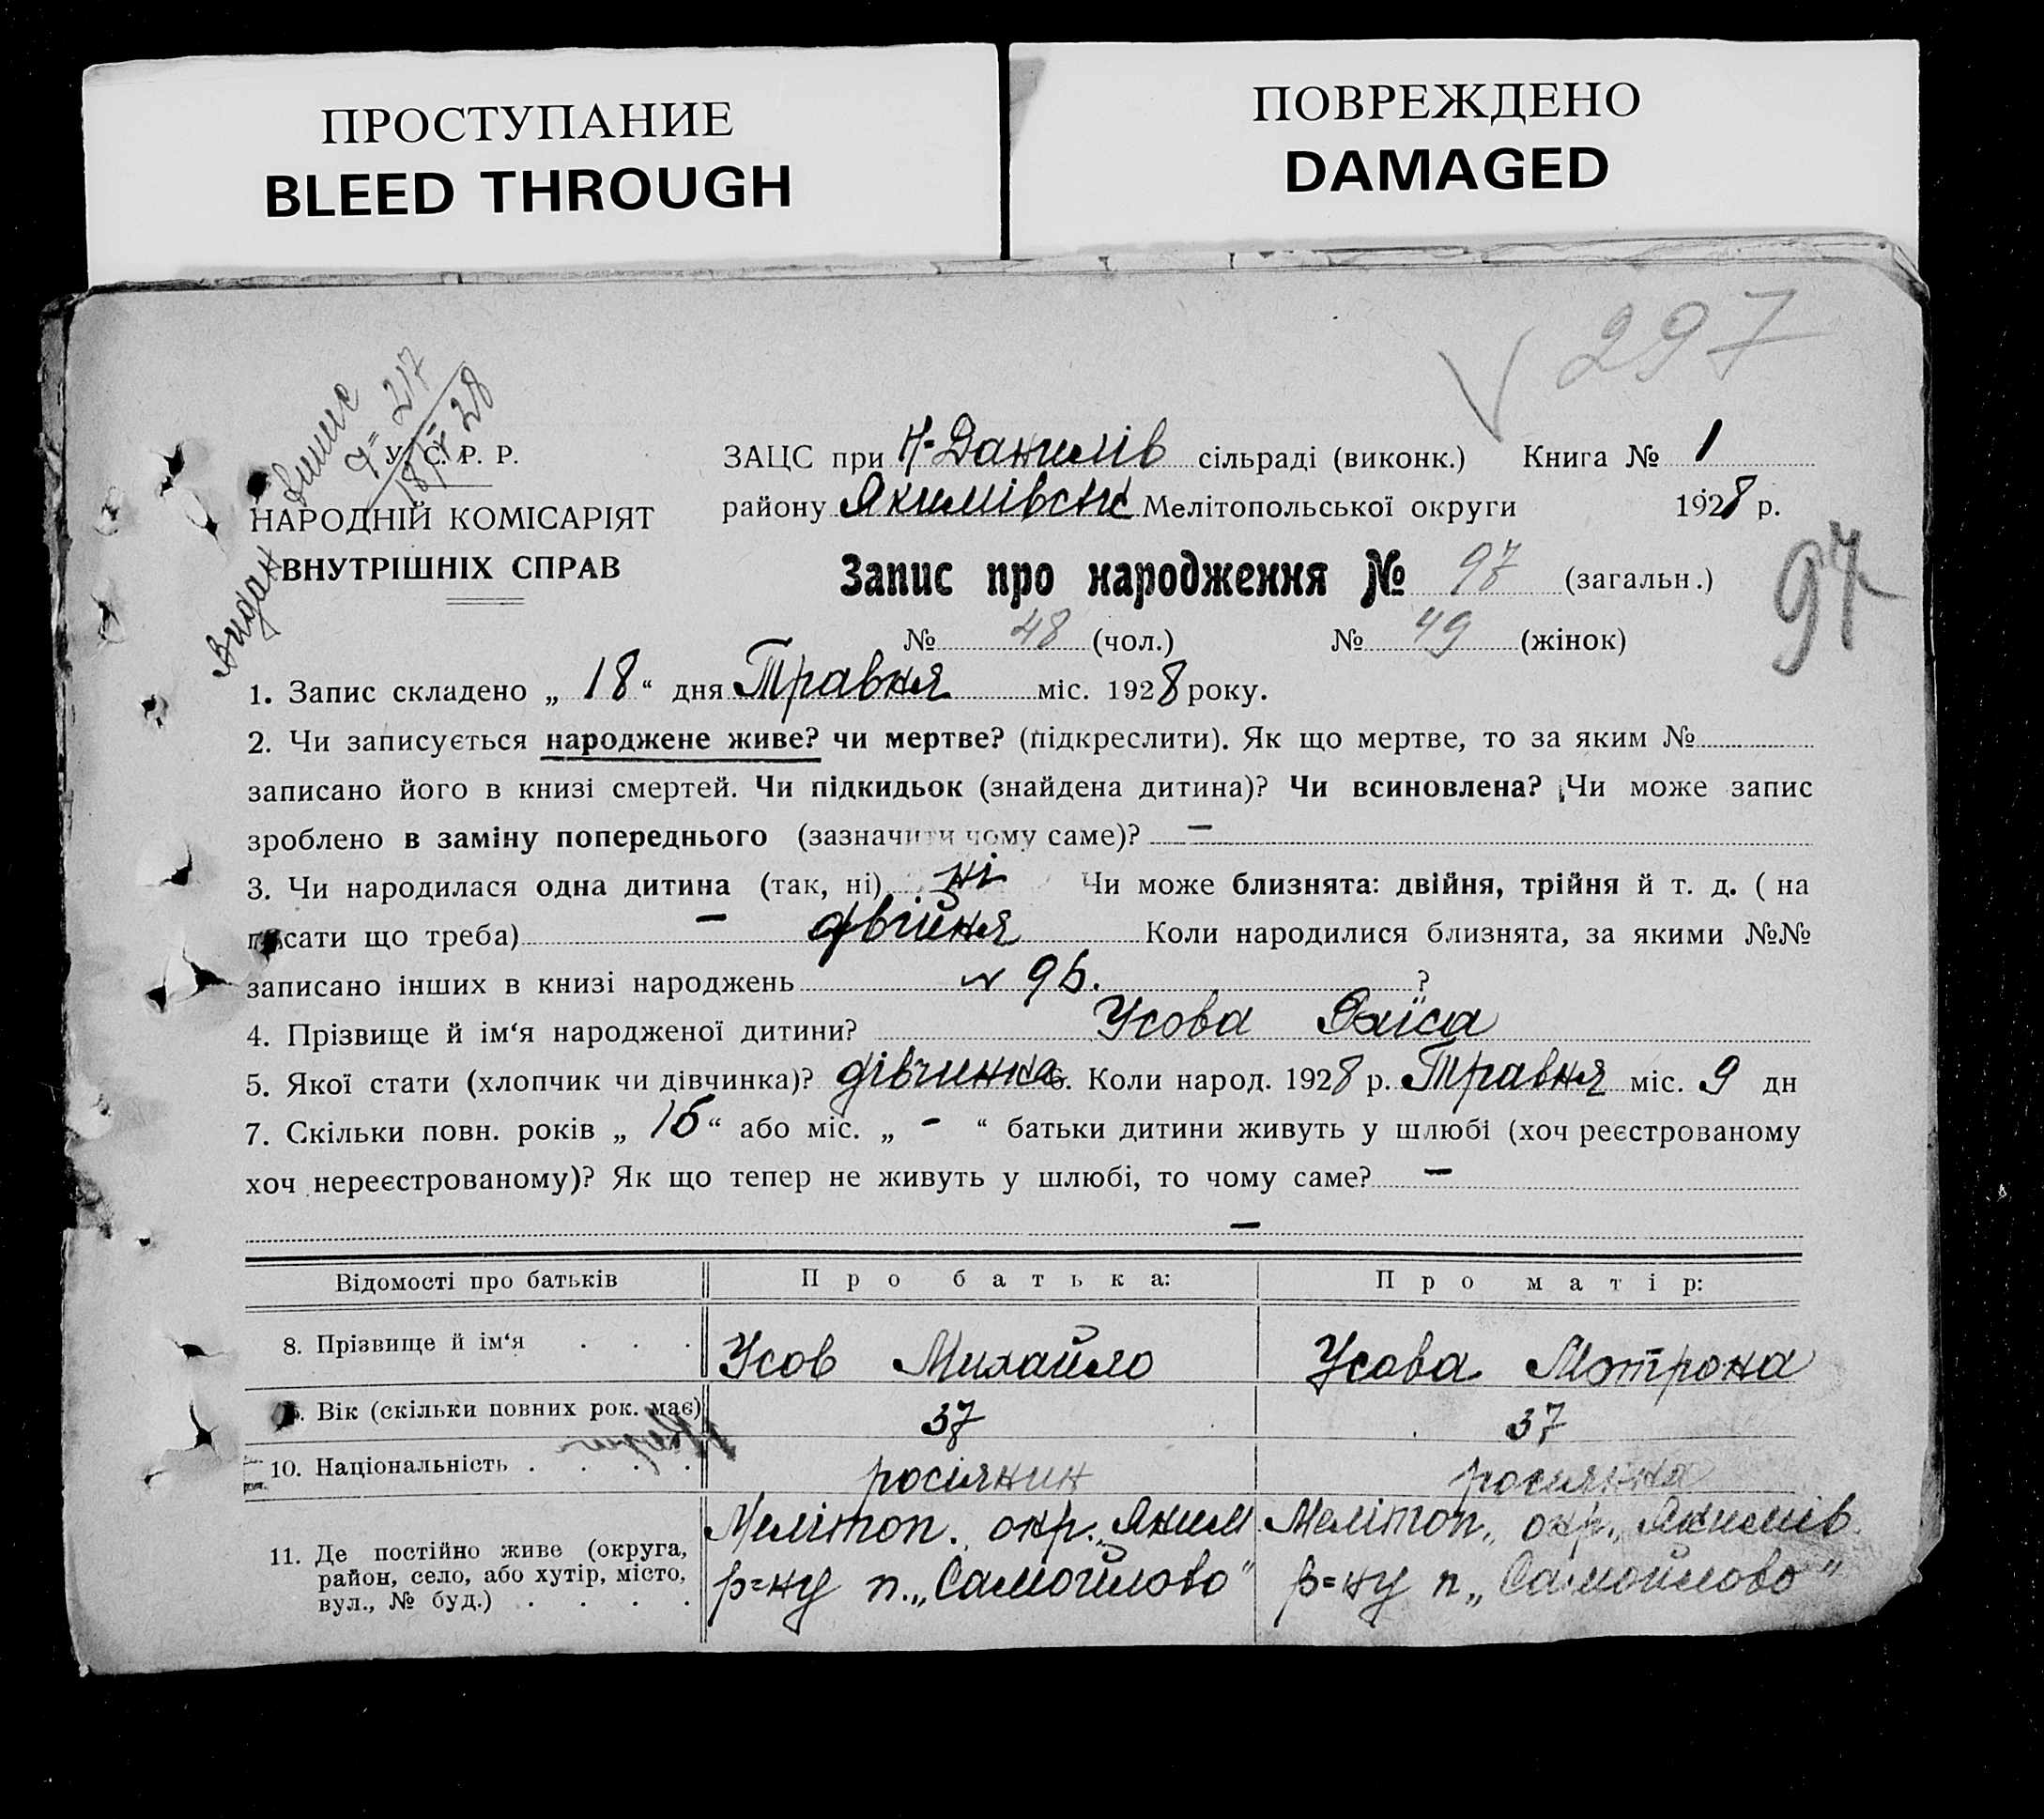 ПРОСТУПАНИЕ
BLEED THROUGH
ПОВРЕЖДЕНО
DAMAGED
297
Видан выпис
У. С. Р. Р.
НАРОДНІЙ КОМІСАРІЯТ
ВНУТРІШНІХ СПРАВ
ЗАЦС при Н-Данилів сільраді (виконк.) Книга № 1
району Якимівськ Мелітопольської округи 1928 р.
Запис про народження № 97 (загальн.)
97
№ 48 (чол.) № 49 (жінок)
1. Запис складено „ 18 “ дня Травня міс. 1928 року.
2. Чи записується народжене живе? чи мертве? (підкреслити). Як що мертве, то за яким №
записано його в книзі смертей. Чи підкидьок (знайдена дитина)? Чи всиновлена? Чи може запис
зроблено в заміну попереднього (зазначити чому саме)? —
3. Чи народилася одна дитина (так, ні) ні Чи може близнята: двійня, трійня й т. д. ( на
писати що треба) — двійня Коли народилися близнята, за якими №№
записано інших в книзі народжень № 96. ?
4. Прізвище й ім‘я народженої дитини? Усова Раїса
5. Якої стати (хлопчик чи дівчинка)? дівчинка 6. Коли народ. 1928 р. Травня міс. 9 дн
7. Скільки повн. років „ 16 “ або міс. „ - “ батьки дитини живуть у шлюбі (хоч реєстрованому
хоч нереєстрованому)? Як що тепер не живуть у шлюбі, то чому саме? —
—
Відомості про батьків Про батька: Про матір:
8. Прізвище й ім‘я . . . Усов Михайло Усова Мотрона
9. Вік (скільки повних рок. має) 37 37
10. Національність . . . . росіянин росіянка
11. Де постійно живе (округа, Мелітоп. окр., Яким Мелітоп., окр., Якимів
район, село, або хутір, місто, р=ну п. „Самойлово“ р=ну п „Самойлово“
вул., № буд.) . . . .